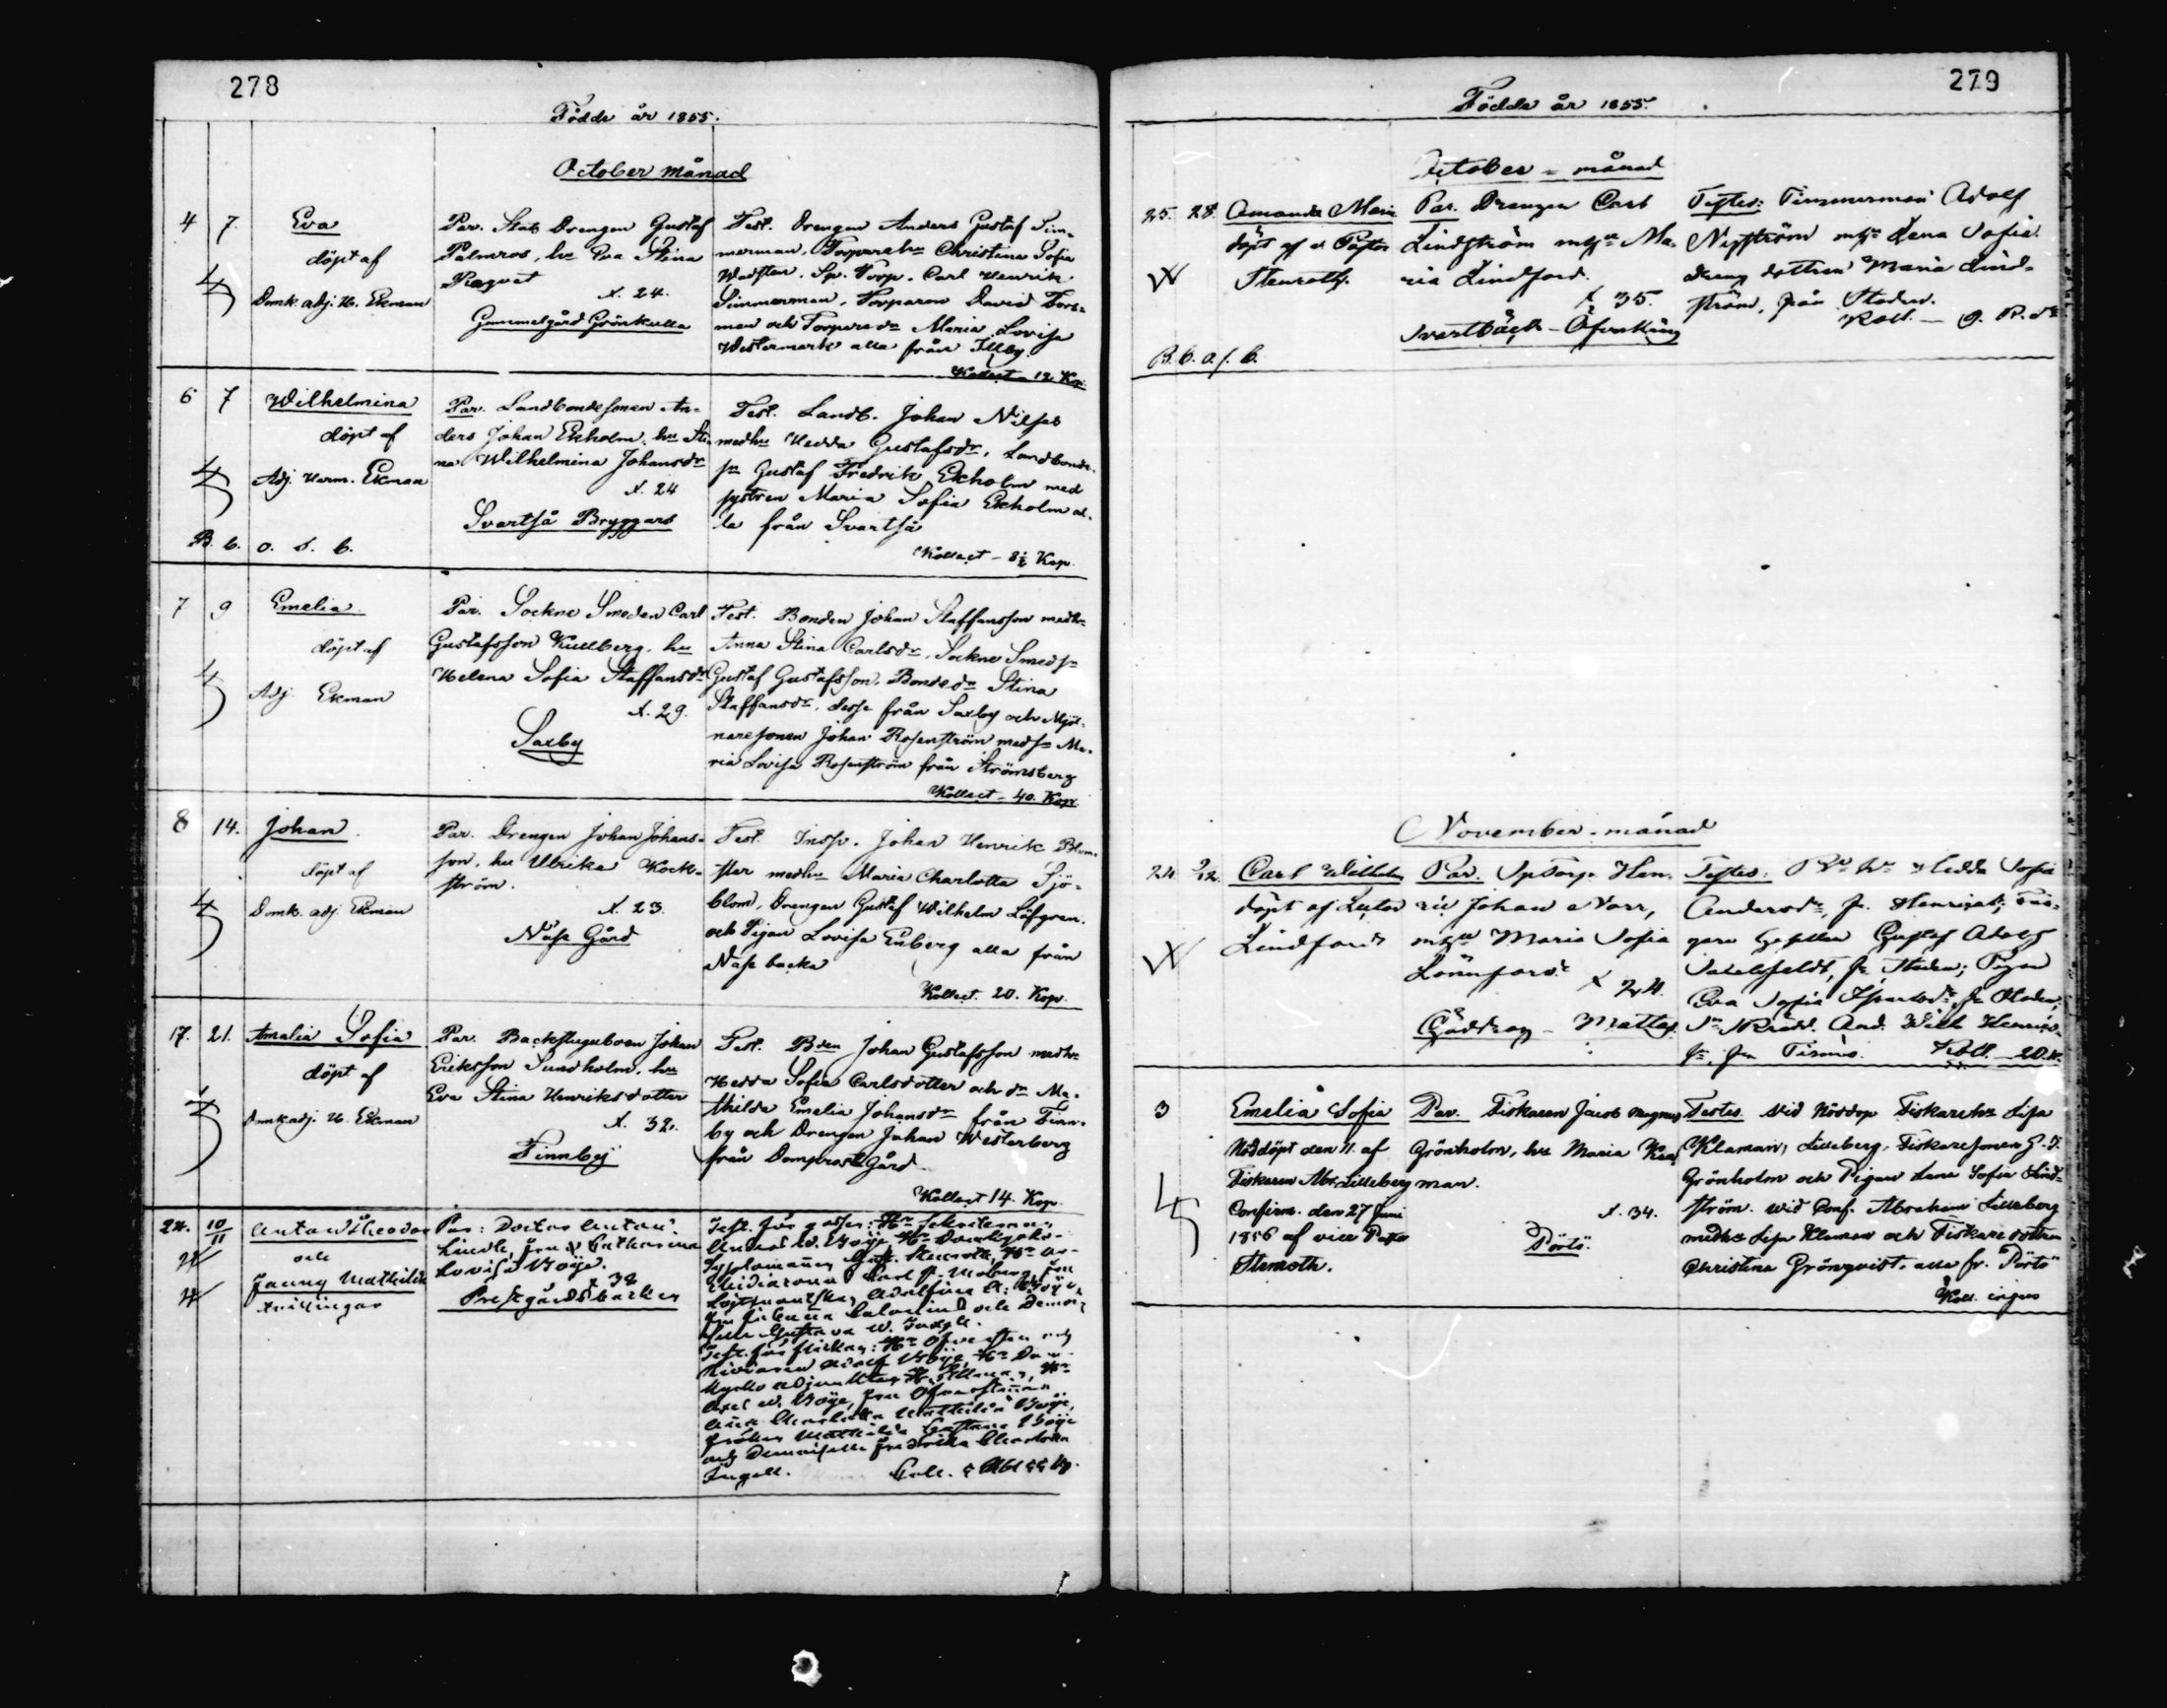 278
Födde år 1855.
October månad
4 7 Eva
döpt af
Domk. adj. H. Ekman
Par. Stat Drengen Gustaf
Palmros, hu Eva Stina
Requet
A. 24.
Gammelgård Grönkulla
Test. Drengen Anders Gustaf Sim-
merman, Torparehu Christina Sofia
Wadsten, Sp. Torp. Carl Henrik
Simmerman, Torparen David Fors-
man och Torparedr Maria Lovisa
Westermark alla från Illby
Kollect - 12 Kop.
6 7 Wilhelmina
döpt af
Adj. Herm. Ekman
B. b. o. s. b.
Par. Landbondesonen An-
ders Johan Ekholm, hu Sti-
na Wilhelmina Johansdr
A. 24
Svartså Bryggars
Test. Landb. Johan Nilsas
medhu Hedda Gustafsdr, Landbonde-
sn Gustaf Fredrik Ekholm med
systren Maria Sofia Ekholm al-
la från Svartså
Kollect - 8½ Kop.
7 9 Emelia
döpt af
Adj. Ekman
Par. Sockne Smeden Carl
Gustafsson Kullberg, hu
Helena Sofia Staffansdr
A. 29.
Saxby
Test. Bonden Johan Staffansson medhu
Anna Stina Carlsdr, Sockne Smedsn
Gustaf Gustafsson, Bondedr Stina
Staffansdr, desse från Saxby och Mjöl-
naresonen Johan Rosenström medsr Ma-
ria Lovisa Rosenström från Strömsberg
Kollect - 40. Kop.
8 14. Johan
döpt af
Domk. adj. Ekman
Par. Drengen Johan Johans-
son, hu Ulrika Kock-
ström.
A. 23.
Näse Gård
Test. Insp. Johan Henrik Blom-
ster medhu Maria Charlotta Sjö-
blom, Drengen Gustaf Wilhelm Löfgren
och Pigan Lovisa Enberg alla från
Näse backa
Kollect. 20. Kop.
17. 21. Amalia Sofia
döpt af
Domk. adj. H. Ekman
Par. Backstuguboen Johan
Eriksson Sundholm, hu
Eva Stina Henriksdotter
A. 32.
Finnby
Test. Bden Johan Gustafsson medhu
Hedda Sofia Carlsdotter och dr Ma-
thilda Emelia Johansdr från Finn-
by och Drengen Johan Westerberg
från Domprost Gård.
Kollect 14. Kop.
24. 10/11 Anton Theodor
och
Fanny Mathilda
tvillingar
Par: Doctor Anton
Lindh, fru Catharina
Lovisa Böije.
A 32
Prestgårdsbacken
Test. för gossen: Hr Sekreteraren
Stenroth, Hr
Carl Moberg, Fru
och Demoi-
Test. för flickan: Hr Öfversten och
Riddaren Adolf Böije, Hr Dom-
kyrko adjunkten H. Ekman, Hr
Axel Böije, Fru Öfverstinnan
Charlotta Mathilda Böije,
Fröken Mathilda Gustava Böije
och Demoiselle Fredrika Charlotta
Ingell.
279
Födde år 1855.
October - månad
25. 28. Amanda Maria
döpt af v. Pastor
Stenroth.
B. b. o. s. b.
Par. Drengen Carl
Lindström mhu Ma-
ria Lindfors.
A 35.
Svartbäck - Öfverkäng
Testes: Timmerman Adolf
Nyström mhu Lena Sofia
dreng dottren Maria Lind-
ström, från Staden.
Koll. -
November - månad
24 2/12 Carl Wilhelm
döpt af Lector
Lindfors
Par. Sp Torp. Hen-
ric Johan Norr,
mhu Maria Sofia
Lönnforsdr
A 24.
Gäddrag - Mattas
Testes: Hedda Sofia
Andersdr,
Gustaf Adolf
fr. Staden; Pigan
Eva Sofia fr Staden,
And. Wilh Henrics-
sn, frn Tirmo. Koll. - 20 k.
3 Emelia Sofia
Nöddöpt den 11. af
Fiskaren Abr. Lilleberg
Confirm. den 27 Juni
1856 af vice Pastor
Stenroth.
Par. Fiskaren Jacob Magnus
Grönholm, hu Maria Kla-
man.
A. 34.
Pörtö.
Testes. Vid Nöddop Fiskarehu Lisa
Klaman, Lilleberg, Fiskaresonen G. J.
Grönholm och Pigan Lena Sofia Lind-
ström. Wid Conf. Abraham Lilleberg
medhu Lisa Klaman och Fiskare dottren
Christina Grönqvist, alla fr. Pörtö
Koll. ingen